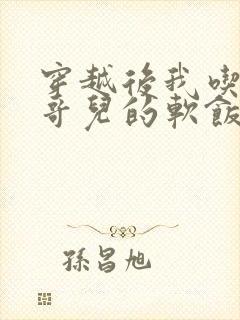 穿越後我喫
哥兒的軟飯
孫昌旭